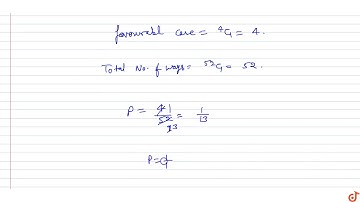 favourabl case = ⁴C₁ = 4.
Total No. of ways = ⁵²C₁ = 52.
P = 4 1 / 52 13 = 1/13
P =